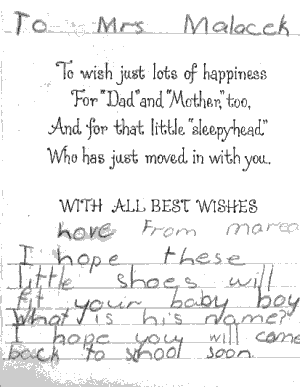 To Mrs Malacek
To wish just lots of happiness
For "Dad" and "Mother," too,
And for that little "sleepyhead"
Who has just moved in with you.
WITH ALL BEST WISHES
hove From
I hope these
little shoes will
fit your baby boy
What is his name?
I hope you will come
back to shool soon